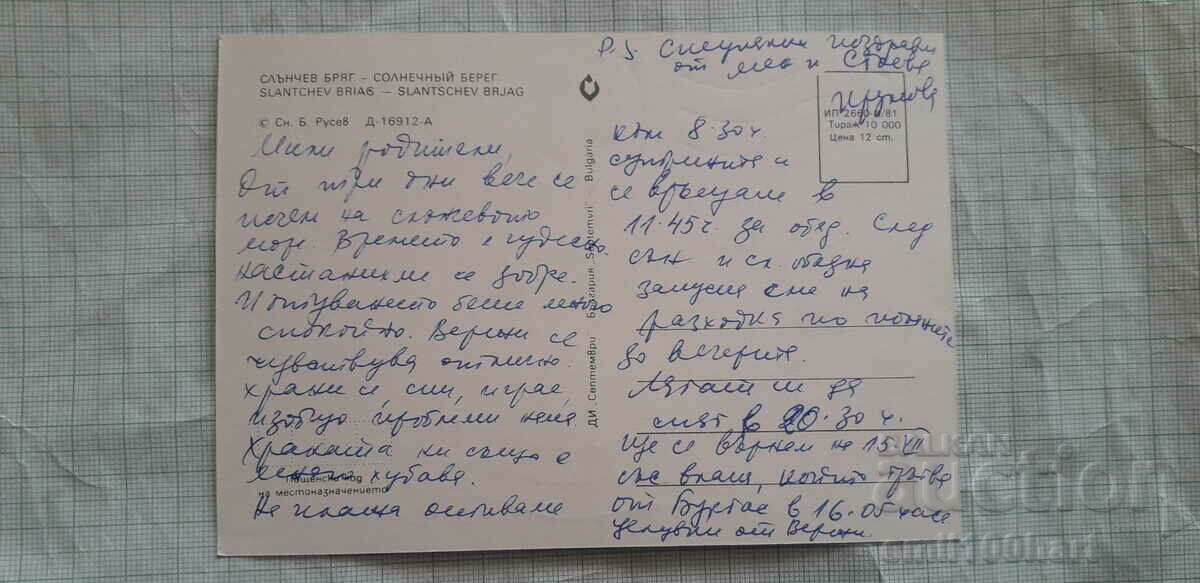 СЛЪНЧЕВ БРЯГ – СОЛНЕЧНЫЙ БЕРЕГ
SLANTCHEV BRIAG – SLANTSCHEV BRJAG
© Сн. Б. Русев Д-16912-А
Мили родители,
От три дни вече се
печем на
море. Времето е чудесно.
настанихме се добре.
И пътуването беше много
спокойно. се
чувствува отлично.
храни се, спи, играе,
изобщо проблеми няма
Храната ни също е
хубава.
Пощенски код
на местоназначението
На плажа отиваме
ДИ „Септември“ България „Septemvri“ Bulgaria
P.S. поздрави
от мен и
ИП 2660-Б/81
Тираж 10 000
Цена 12 ст.
към 8.30 ч.
сутринта и
се връщаме в
11.45 ч. за обяд. След
сън и сл. обядна
закуска сме на
разходка по
до вечерта.
Лягаме си да
спят в 20.30 ч.
Ще се върнем на 15.VII
със влака, който тръгва
от Бургас в 16.05 часа
целувки от
БАЛКАН
аukcion
emil100hari